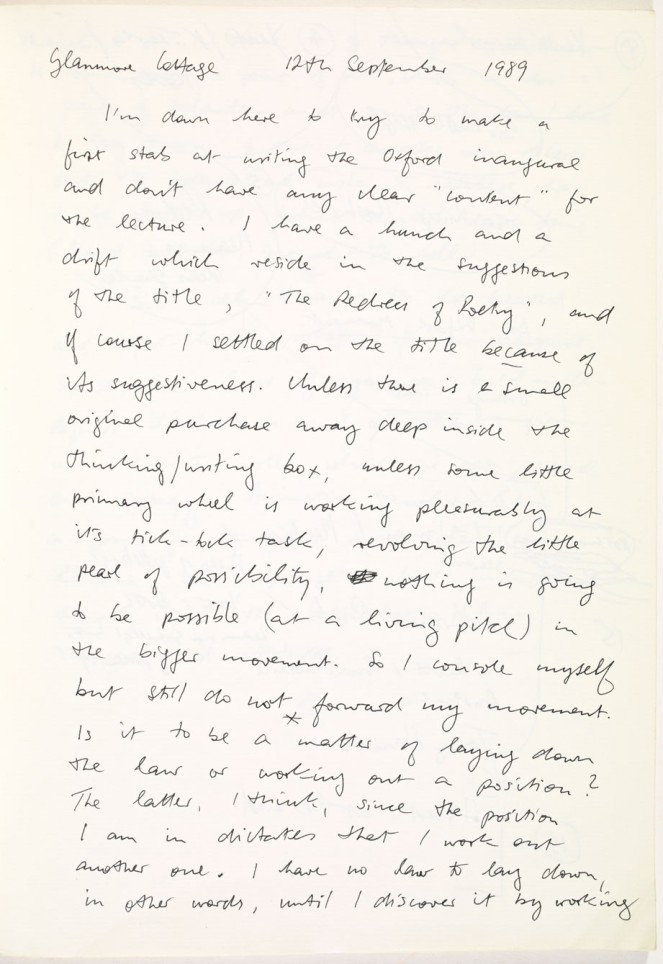 Glanmore Cottage 12th September 1989
I'm down here to try to make a
first stab at writing the Oxford inaugural
and don't have any clear "content" for
the lecture. I have a hunch and a
drift which reside in the suggestions
of the title, "The Redress of Poetry", and
of course I settled on the title because of
its suggestiveness. Unless there is a small
original purchase away deep inside the
thinking/writing box, unless some little
primary wheel is working pleasurably at
its tick-tock task, revolving the little
pearl of possibility, nothing is going
to be possible (at a living pitch) in
the bigger movement. So I console myself
but still do not forward my movement.
Is it to be a matter of laying down
the law or working out a position?
The latter, I think, since the position
I am in dictates that I work out
another one. I have no law to lay down,
in other words, until I discover it by working